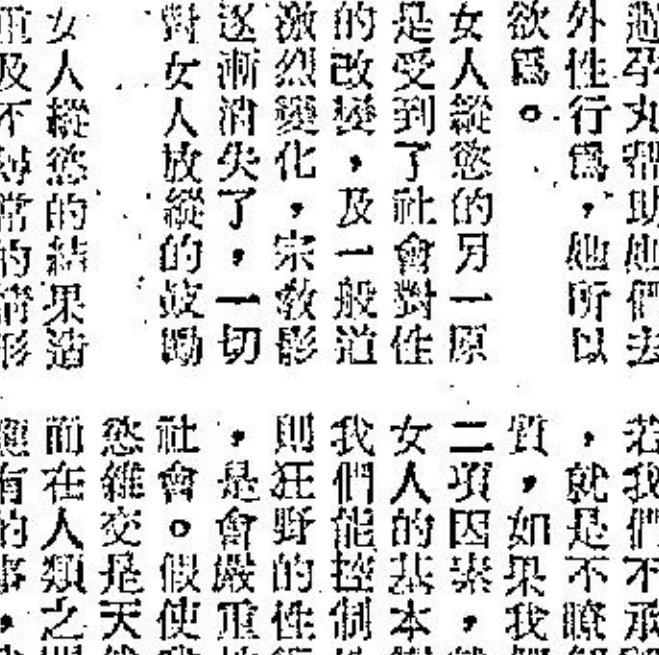 孕丸幫助他們去
外性行爲，他所以
欲爲。
女人縱慾的另一原
是受到了社會對性
的改變，及一般道
激烈變化，宗教影
逐漸消失了，一切
對女人放縱的鼓勵
女人縱慾的結果造
及不尋常的情形
若我們不承
，就是不瞭
質，如果我
二項因素，
女人的基本
我們能控制
則狂野的性
，是會嚴重
社會。假使
慾雜交是天
而在人類之
有的事，